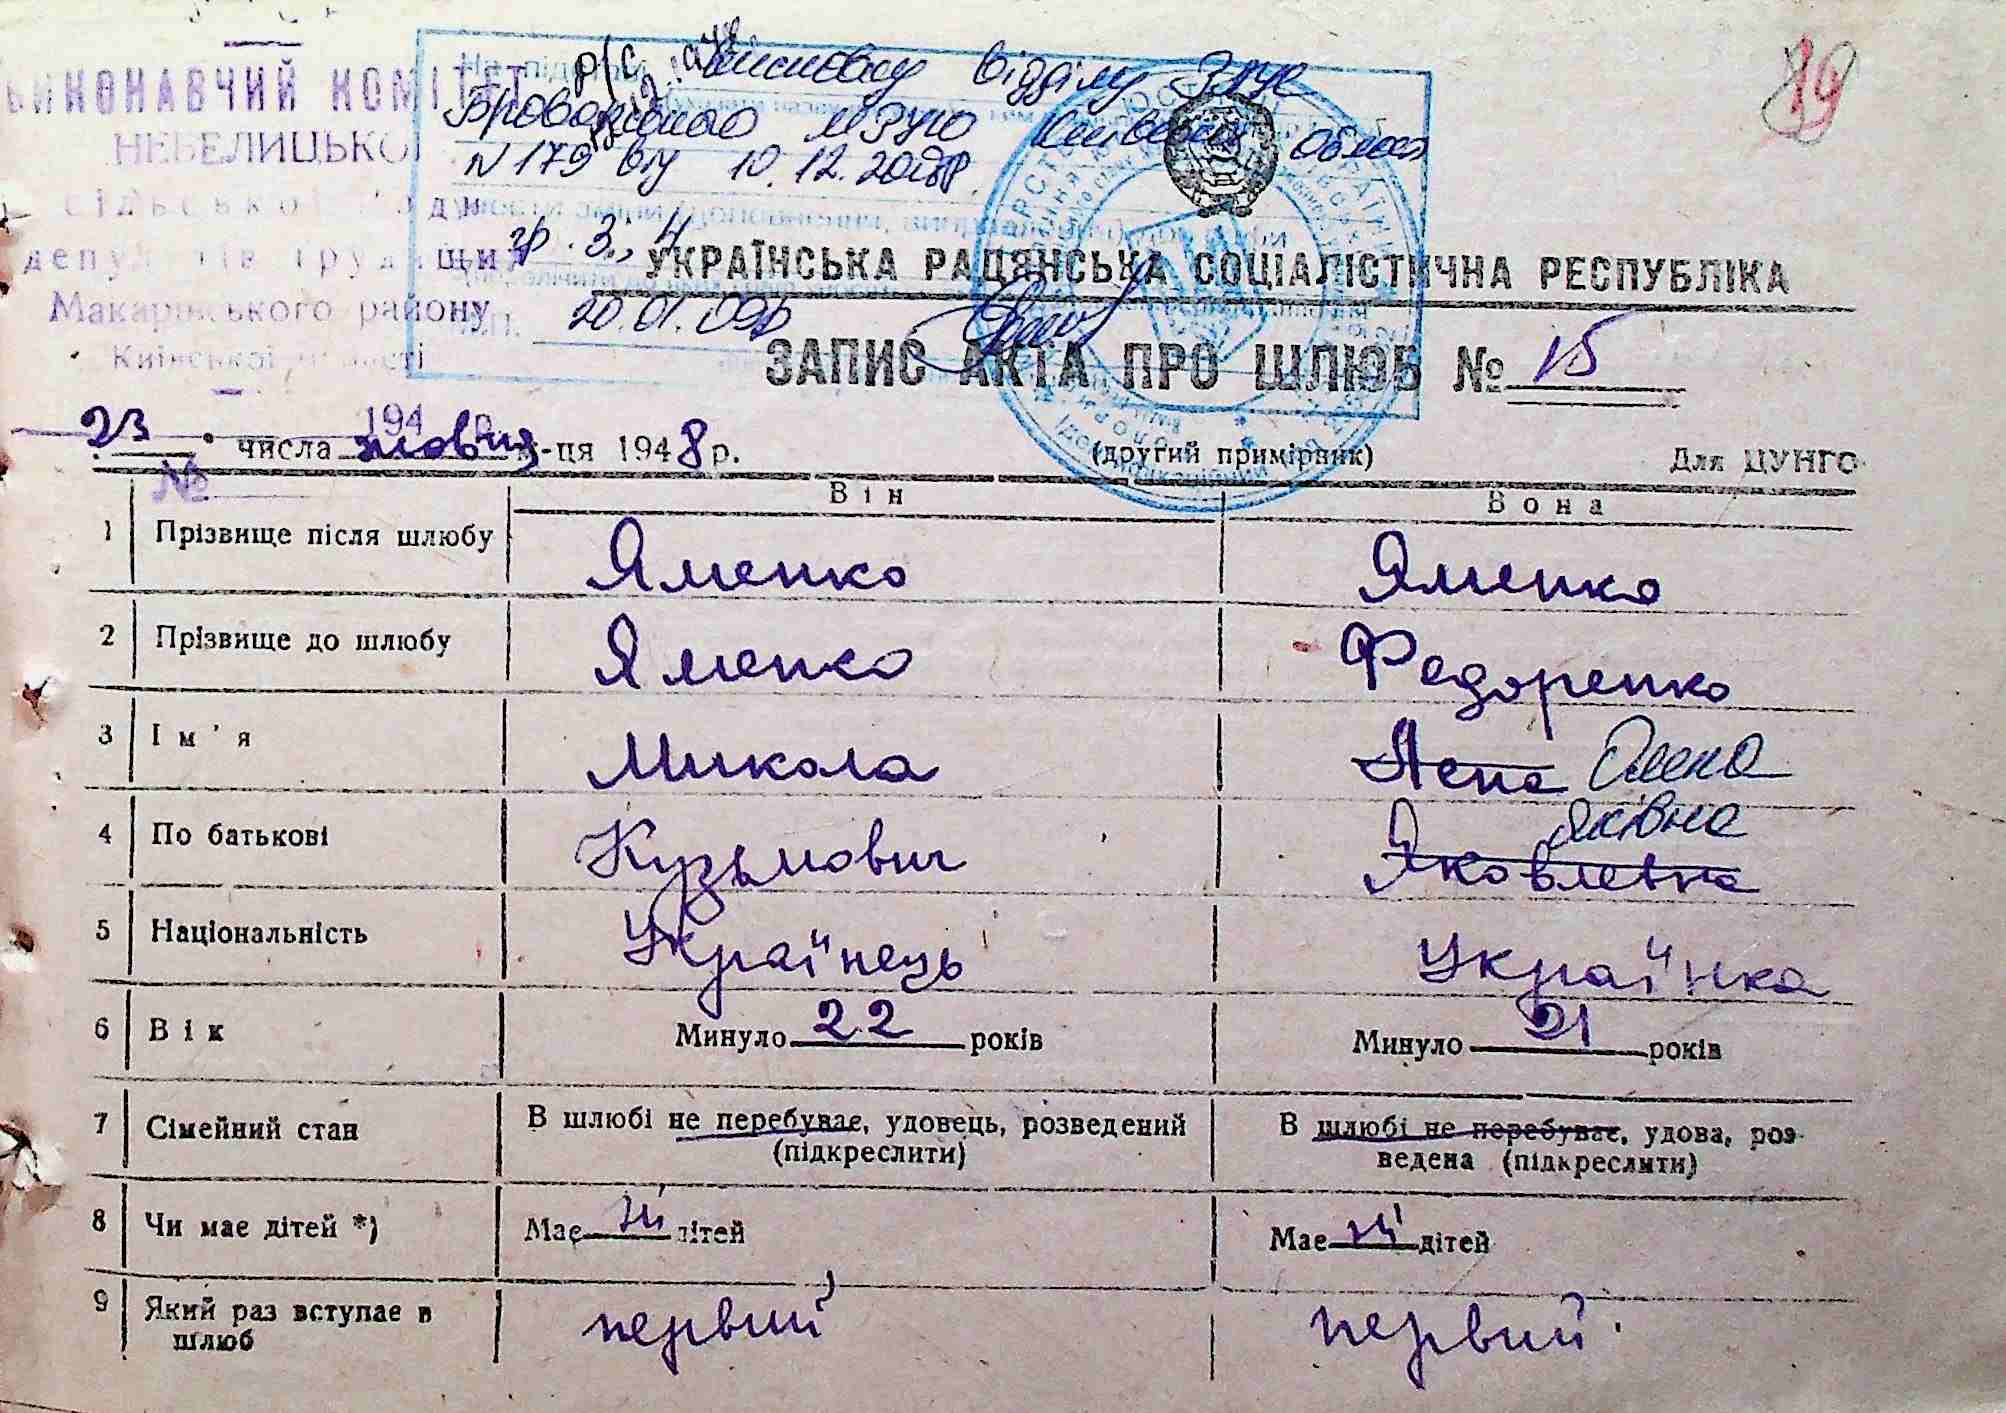 ВИКОНАВЧИЙ КОМІТЕТ
НЕБЕЛИЦЬКО
сільської
депутатів трудящих
Макарівського району
Київської області
194 р.
№
р/с висновку відділу
Броварського МРУЮ Київської області
N 179 від 10.12.2008р.
гр. 3, 4
20.01.09р
79
УКРАЇНСЬКА РАДЯНСЬКА СОЦІАЛІСТИЧНА РЕСПУБЛІКА
ЗАПИС АКТА ПРО ШЛЮБ № 15
23 числа жовтня м-ця 1948 р. (другий примірник) Для ЦУНГО
Він Вона
1 Прізвище після шлюбу Яменко Яменко
2 Прізвище до шлюбу Яменко Федоренко
3 Ім'я Микола Лена Олена
Яківна
4 По батькові Кузьмович Яковлевна
5 Національність Українець Українка
6 Вік Минуло 22 років Минуло 21 років
7 Сімейний стан В шлюбі не перебуває, удовець, розведений В шлюбі не перебуває, удова, роз-
(підкреслити) ведена (підкреслити)
8 Чи має дітей *) Має ні дітей Має ні дітей
9 Який раз вступає в шлюб первий первий